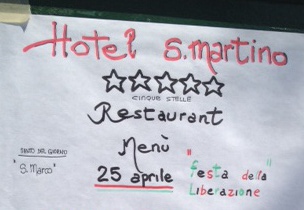 Hotel S.martino
CINQUE STELLE
Restaurant
Menù
SANTO DEL GIORNO
"S. Marco"
25 aprile
"festa della
Liberazione"